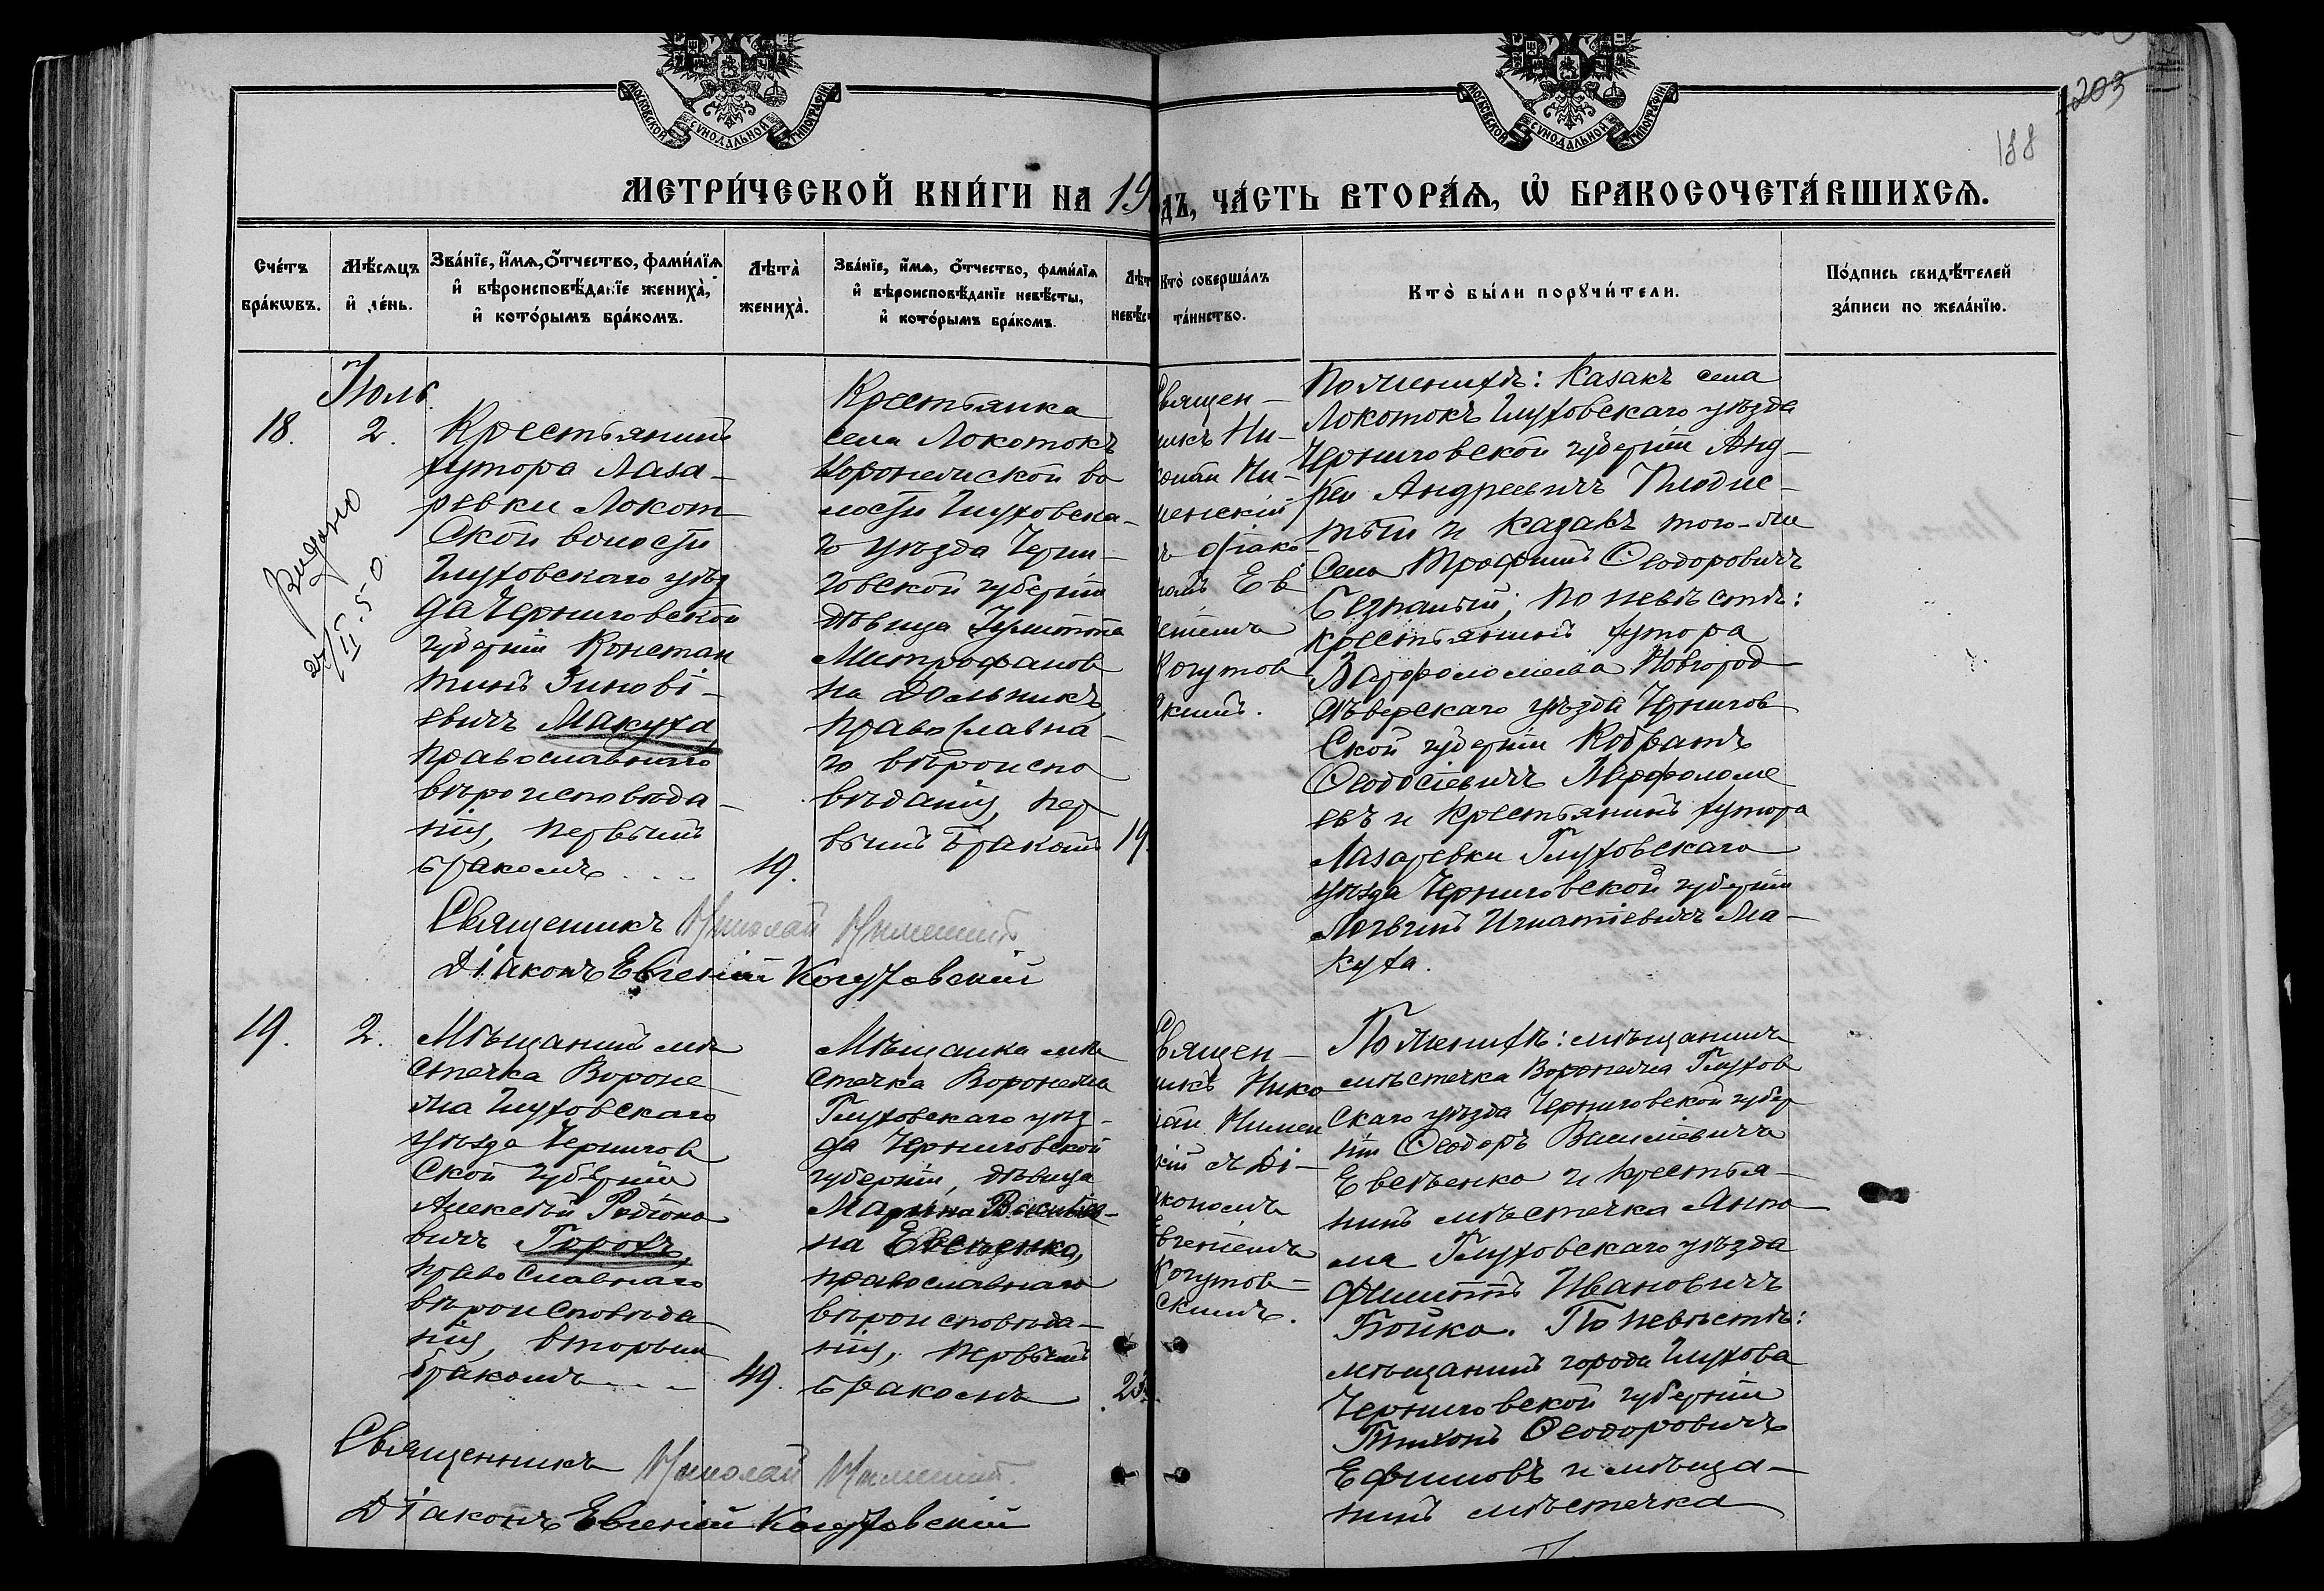 МОСКОВСКОЙ СѴНОДАЛЬНОЙ ТИПОГРАФІИ
МОСКОВСКОЙ СѴНОДАЛЬНОЙ ТИПОГРАФІИ
203
188
МЕТРИ́ЧЕСКОЙ КНИ́ГИ НА 19
ДЪ, ЧА́СТЬ ВТОРА́Ѧ, Ѽ БРАКОСОЧЕТА́ВШИХСѦ.
Сче́тъ
бра́кѡвъ.
Мѣ́сѧцъ
и҆ де́нь.
Зва́нїе, и҆́мѧ, ѻ҆́тчество, фами́лїѧ
и҆ вѣроисповѣ́данїе жениха̀,
и҆ кото́рымъ бра́комъ.
Лѣта̀
жениха̀.
Зва́нїе, и҆́мѧ, ѻ҆́тчество, фами́лїѧ
и҆ вѣроисповѣ́данїе невѣ́сты,
и҆ кото́рымъ бра́комъ.
Лѣт
невѣ́с
Кто̀ соверша́лъ
та́инство.
Кто̀ бы́ли порꙋчи́тели.
По́дпись свидѣ́телей
за́писи по жела́нїю.
Іюль.
18.
2.
Видано
Крестьянинъ
хутора Лаза-
ревки Локот
ской волости
Глуховскаго уѣз
да Черниговской
губерніи Констан
тинъ Зинові-
евичъ Макуха
православнаго
вѣроисповѣда-
нія, первымъ
бракомъ
19.
Крестьянка
села Локотокъ
Воронежской во
лости Глуховска-
го уѣзда Черни-
говской губерніи
дѣвица
Митрофанов
на Дольникъ,
православна-
го вѣроиспо
вѣданія, пер
вымъ бракомъ
19.
Священ-
никъ Ни-
колай Ни-
менскій
съ діако-
номъ Ев
геніемъ
Когутов
скимъ.
По женихѣ: Казакъ села
Локотокъ Глуховскаго уѣзда
Черниговской губерніи Анд-
рей Андреевичъ
и казакъ того-же
села Трофимъ Ѳеодоровичъ
Безпалый; по невѣстѣ:
крестьянинъ хутора
Варфоломеева Новгород
сѣверскаго уѣзда Чернигов
ской губерніи Кодратъ
Ѳеодосіевичъ Варфоломе
евъ и крестьянинъ хутора
Лазаревки Глуховскаго
уѣзда Черниговской губерніи
Логвинъ Игнатіевичъ Ма-
куха.
Священникъ Николай
Діаконъ Евгеній Когутовскій
19.
2.
Мѣщанинъ мѣ
стечка Вороне
жа Глуховскаго
уѣзда Чернигов
ской губерніи
Алексѣй Родіоно
вичъ Горохъ,
православнаго
вѣроисповѣда
нія, вторымъ
бракомъ
49.
Мѣщанка мѣ
стечка Воронежа
Глуховскаго уѣз-
да Черниговской
губерніи, дѣвица
Марина Васильев-
на Евсѣенко,
православнаго
вѣроисповѣда-
нія, первымъ
бракомъ
23.
Священ-
никъ Нико
лай Нимен
скій съ ді-
акономъ
Евгеніемъ
Когутов-
скимъ.
По женихѣ: мѣщанинъ
мѣстечка Воронежа Глухов
скаго уѣзда Черниговской губер
ніи Ѳеодоръ Васильевичъ
Евсѣенко и крестья-
нинъ мѣстечка Ямпо
ля Глуховскаго уѣзда
Филиппъ Ивановичъ
Бойко. По невѣстѣ:
мѣщанинъ города Глухова
Черниговской губерніи
Тихонъ Ѳеодоровичъ
Ефимовъ и мѣща-
нинъ мѣстечка
Священникъ Николай
Діаконъ Евгеній Когутовскій